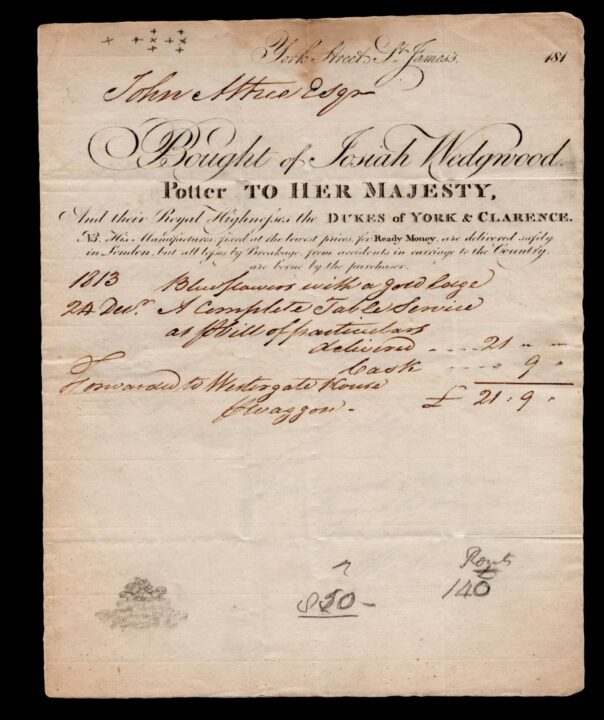 York Street, St. James's. 181
John Attree Esqr
Bought of Josiah Wedgwood.
Potter TO HER MAJESTY,
And their Royal Highnesses the DUKES of YORK & CLARENCE.
NB. His Manufactures fixed at the lowest prices, for Ready Money, are delivered safely
in London, but all losses by Breakage, from accidents in carriage to the Country,
are borne by the purchaser.
1813 Blue flowers with a gold edge
24 Decr. A Complete Table Service
as pr Bill of particulars
delivered - - - - 21 " "
Cask - - - - " 9 "
Forwarded to Westergate House
pr Waggon - £ 21 " 9 "
850 -
140